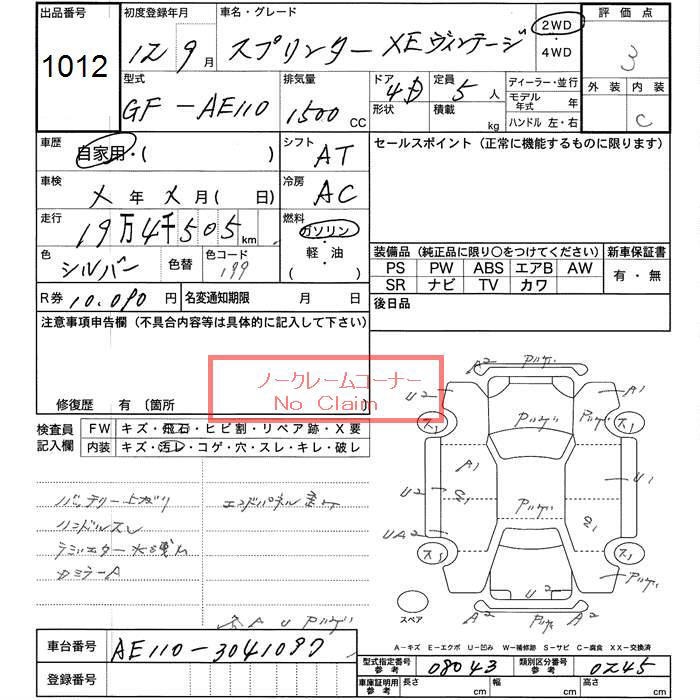 出品番号 初度登録年月 車名・グレード 評価点
1012 12 9月 スプリンター XEヴィンテージ 2WD・4WD 3
型式 排気量 ドア 定員 ディーラー・並行 外装 内装
GF-AE110 1500 CC 4D 5人 モデル年式 年 C
形状 積載 kg ハンドル 左・右
車歴 自家用・( ) シフト AT セールスポイント (正常に機能するものに限ります)
車検 X年X月( 日) 冷房 AC
走行 19万4千505km 燃料 ガソリン・軽・油( )
色 シルバー 色替 色コード 199
装備品 (純正品に限り○をつけてください) 新車保証書
PS PW ABS エアB AW 有・無
SR ナビ TV カワ
R券 10,090円 名変通知期限 月 日 後日品
注意事項申告欄 (不具合内容等は具体的に記入して下さい)
ノークレームコーナー
No Claim
修復歴 有 (箇所 )
検査員記入欄 FW キズ・飛石・ヒビ割・リペア跡・X要
内装 キズ・汚レ・コゲ・穴・スレ・キレ・破レ
バッテリー上ガリ エンドパネル
ハンドルスレ
ラジエター
ミラーA
A U
A2
U2 A1
ス1 ス1
A1
U2 U1
UA2
ス1 ス1
U2
A2 A2
スペア
A-キズ E-エクボ U-凹み W-補修跡 S-サビ C-腐食 XX-交換済
車台番号 AE110-3041097
登録番号
型式指定番号 参考 08043 類別区分番号 参考 0245
車庫証明用 参考 長さ cm 幅 cm 高さ cm